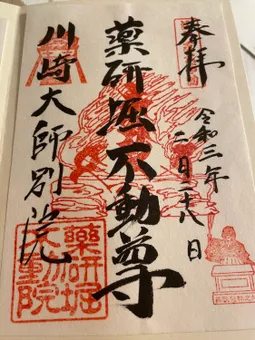 奉拝
令和三年
二月二十八日
薬研堀不動尊
川崎大師別院
薬研堀
不動院